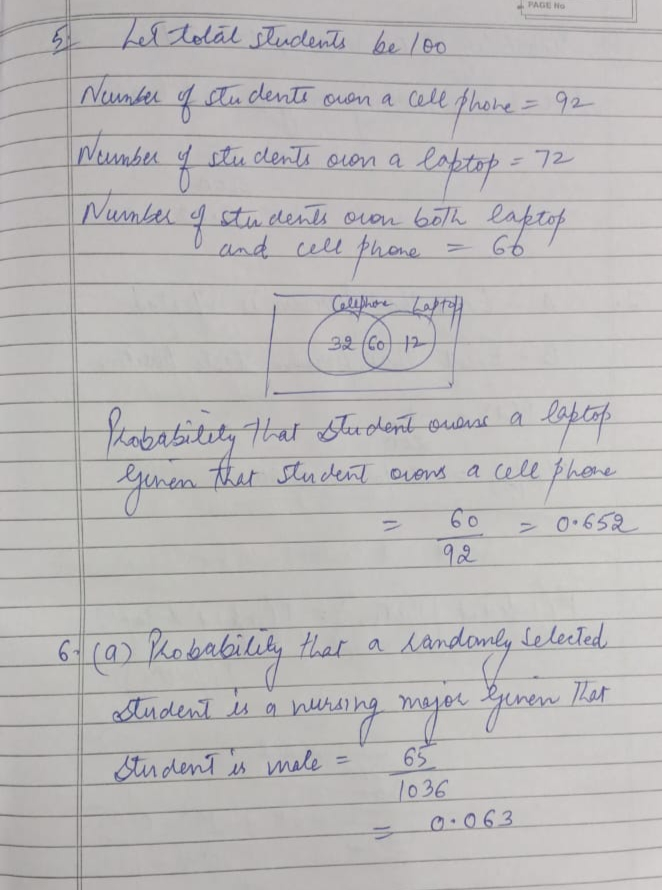 PAGE No
5. Let total students be 100
Number of students own a cell phone = 92
Number of students own a laptop = 72
Number of students own both laptop
and cell phone = 60
Cellphone Laptop
32 60 12
Probability that student owns a laptop
Given that student owns a cell phone
= 60/92 = 0.652
6. (a) Probability that a randomly selected
student is a nursing major given that
student is male = 65/1036
= 0.063